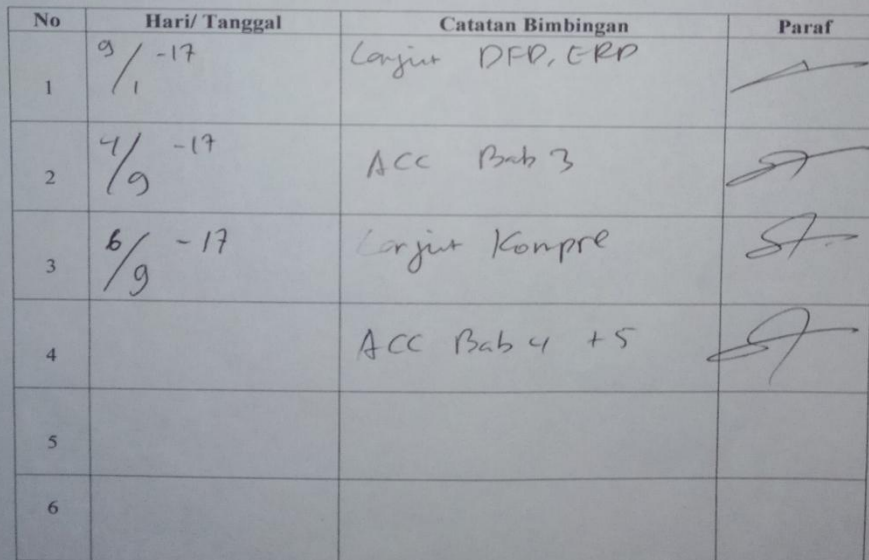 No Hari/ Tanggal Catatan Bimbingan Paraf
1 9/1 -17 Lanjut DFD, ERD
2 4/9 -17 ACC Bab 3
3 6/9 -17 Lanjut Kompre
4 ACC Bab 4 + 5
5
6